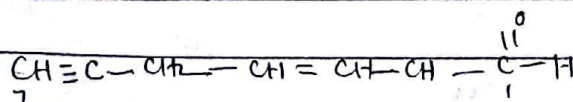 O
CH≡C-CH2-CH=CH-CH-C-H
7 1